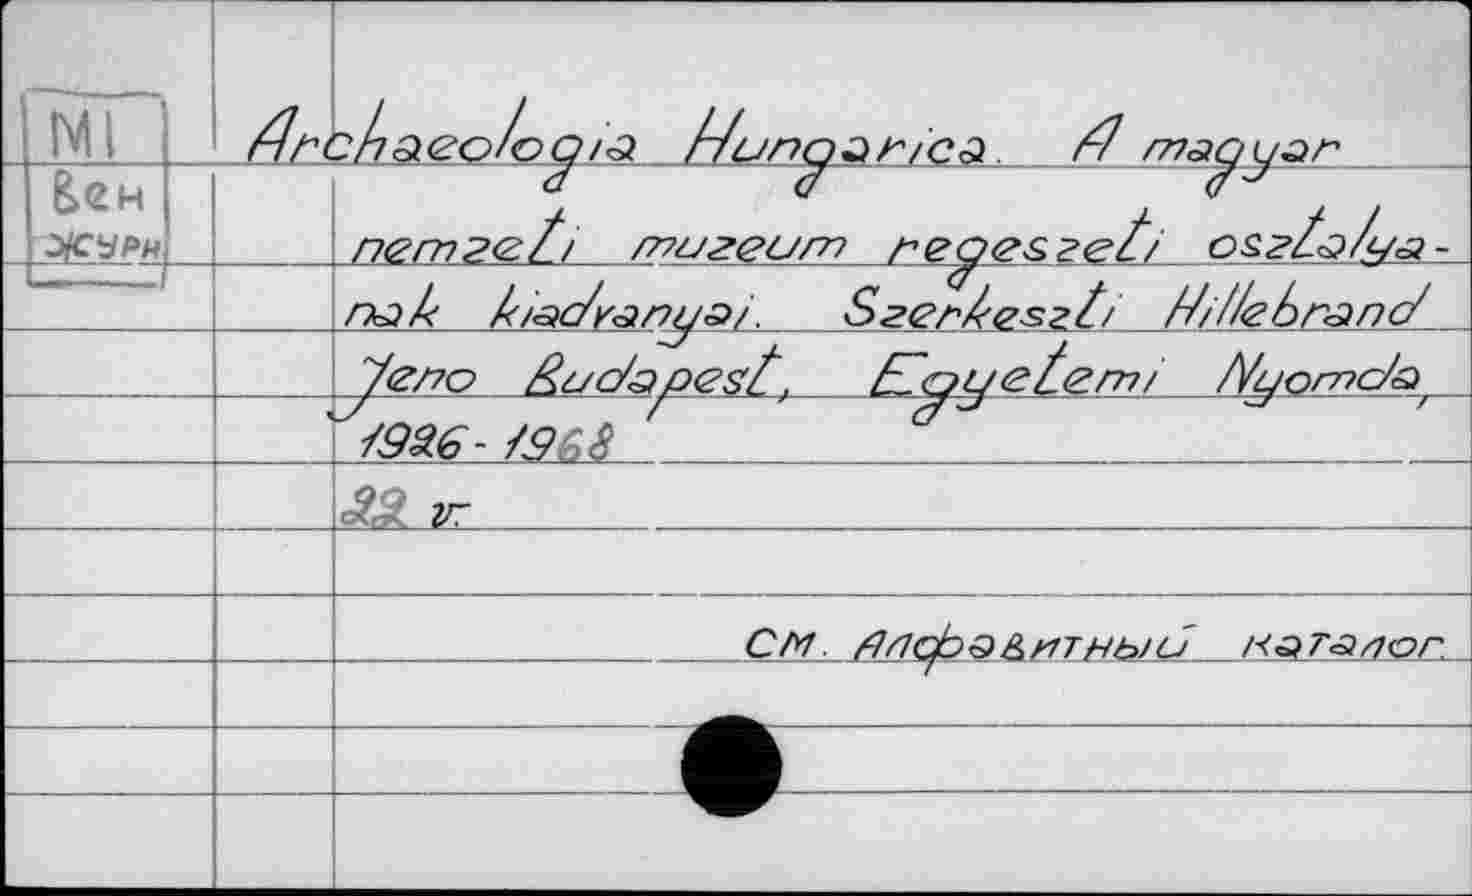 МІ
Вен
журн.
Archaeologia Hungarica. A magyar
nemzeti muzeum regeszeti osztalya-
nak kiadvanyai. Szerkeszti Hillebrand
Jeno Budapest, Egyetemi Nyomda,
1926-1968
22 г.
См. Алфавитный каталог.